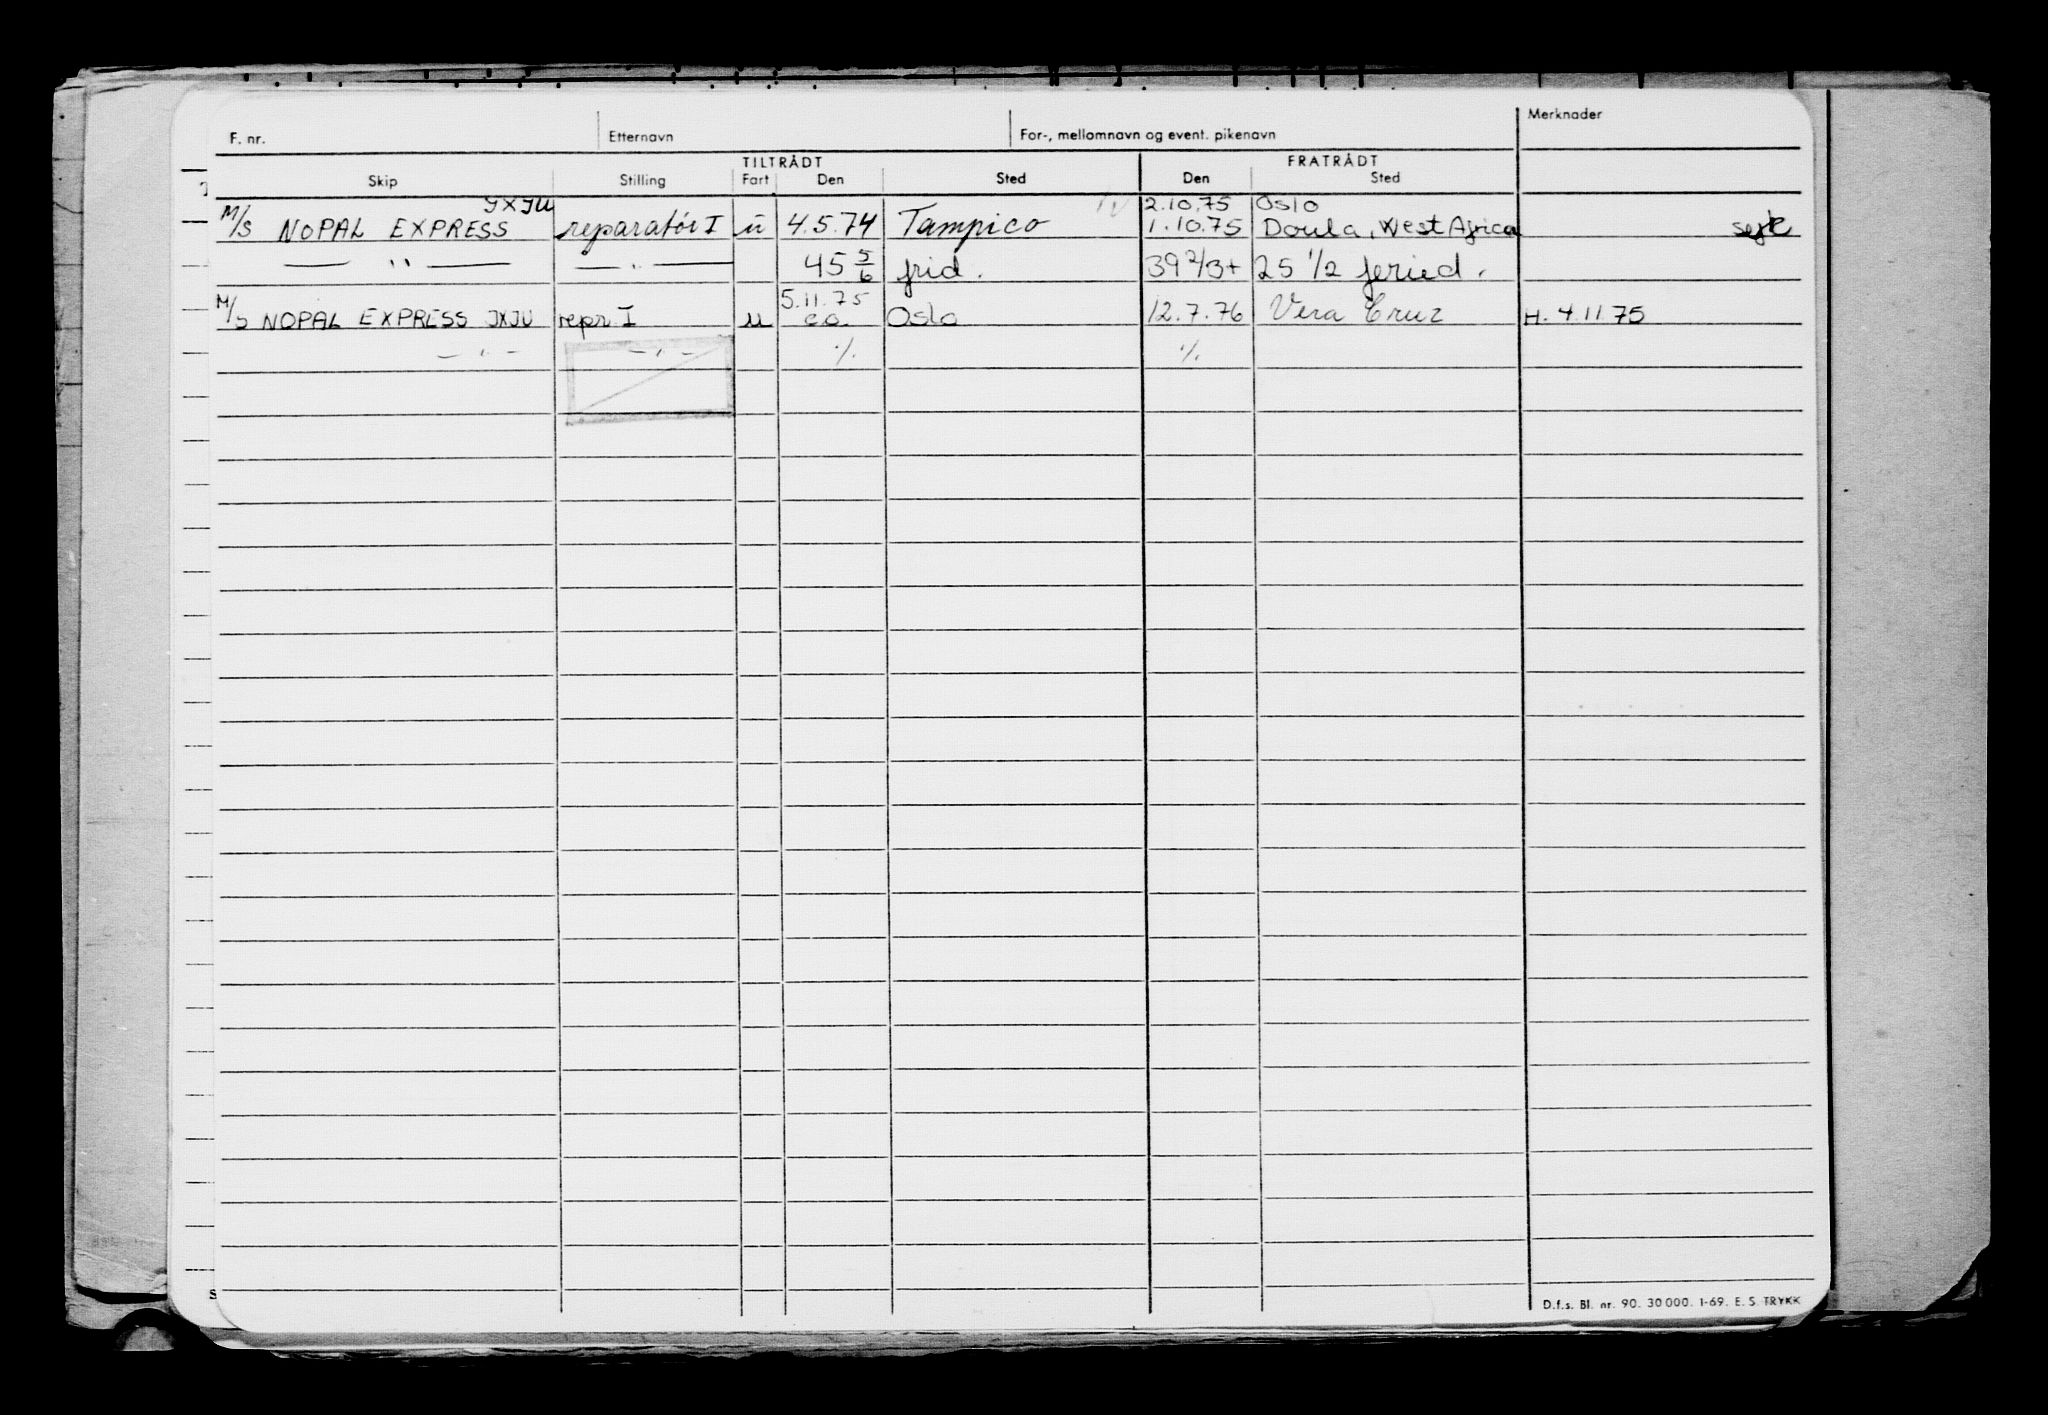 F. nr. Etternavn For-, mellomnavn og event. pikenavn Merknader
TILTRÅDT FRATRÅDT
Skip Stilling Fart Den Sted Den Sted
JXJU 2.10.75 Oslo
M/S NOPAL EXPRESS reparatör I ū 4.5.74 Tampico 1.10.75 Doula, West Africa syk
— " — — " — 45 5/6 frid. 39 2/3+ 25 1/2 feried.
5.11.75
M/S NOPAL EXPRESS JXJU repr I u ca. Oslo 12.7.76 Vera Cruz H. 4.11.75
— " — — " — ./. ./.
D.f.s. Bl. nr. 90. 30 000. 1-69. E. S. TRYKK